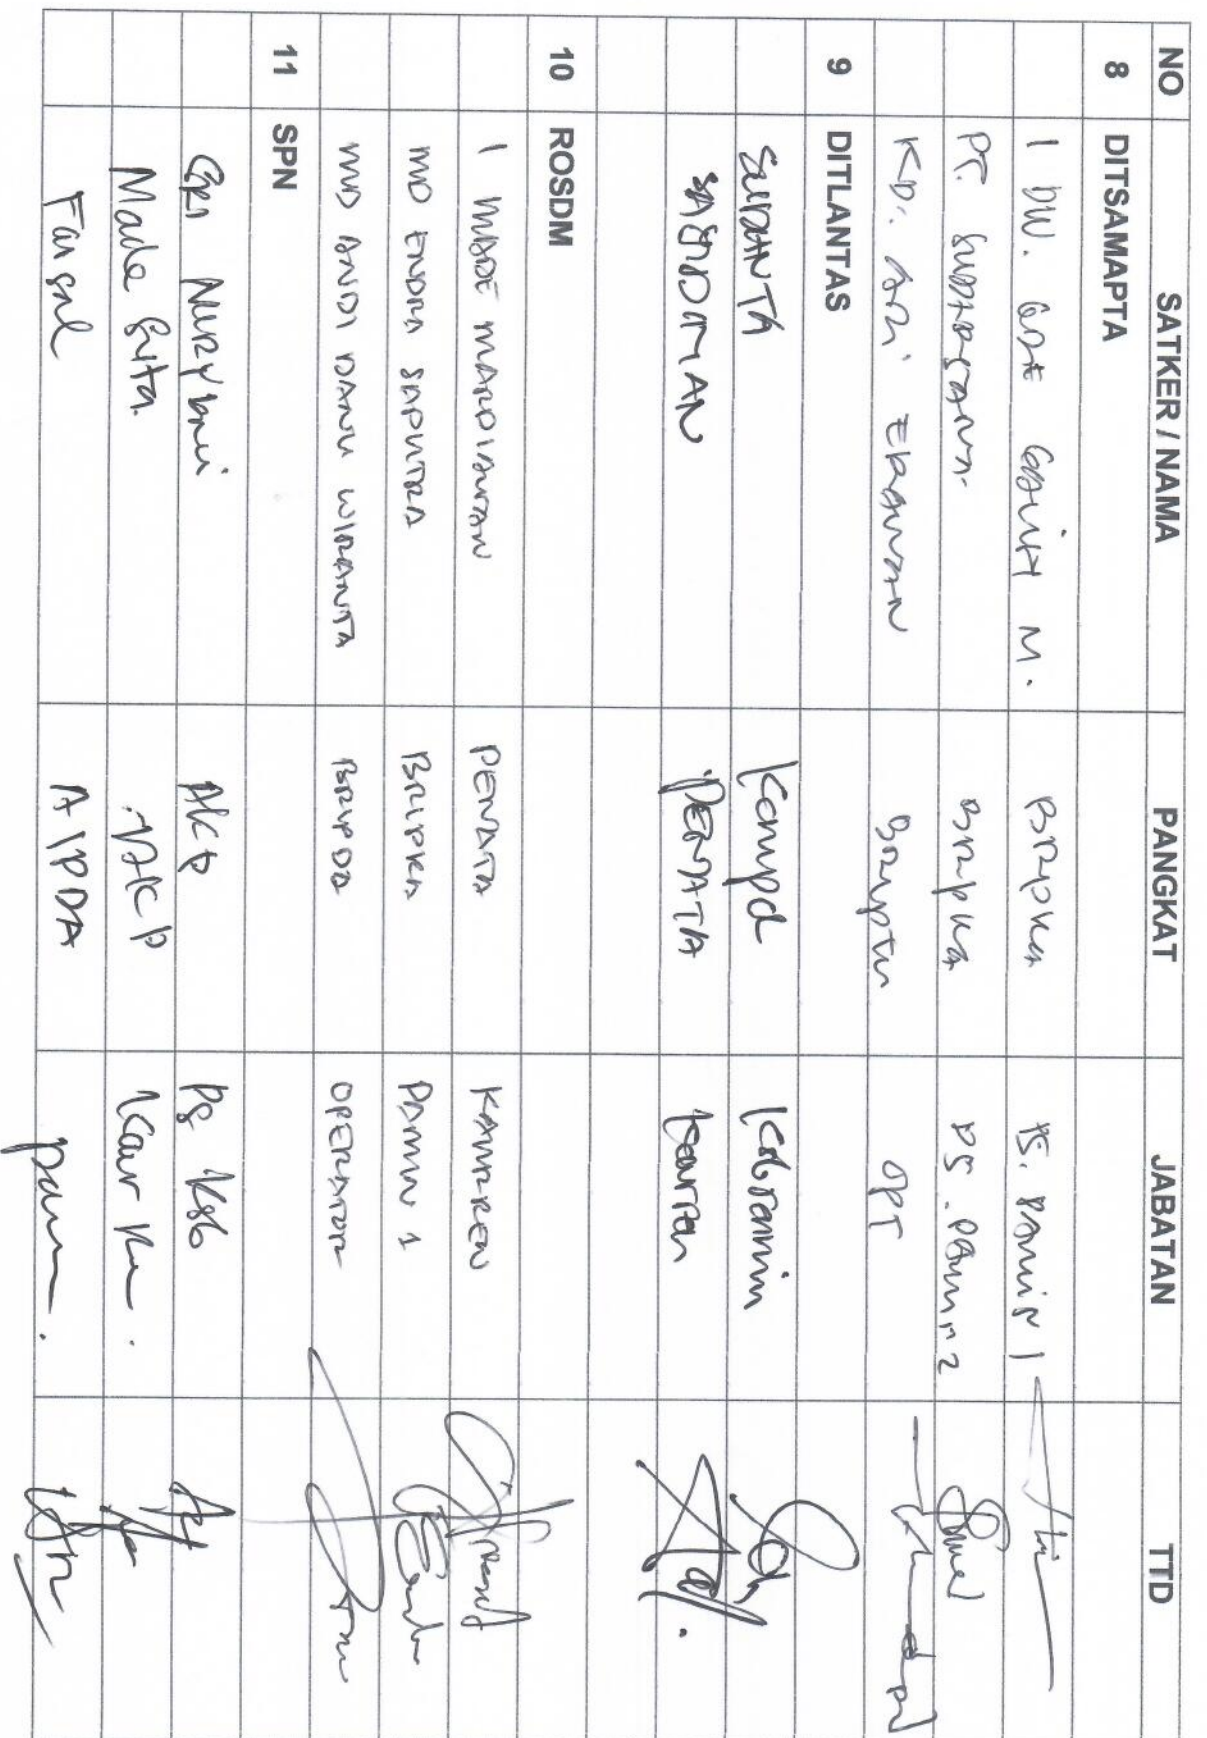 NO SATKER / NAMA PANGKAT JABATAN TTD
8 DITSAMAPTA
I DW. GDE M. BRIPKA PS. PAMIN 1
PT. BRIPKA PS. PAMIN 2
KD. ARI ERAWAN BRIPTU OPT
9 DITLANTAS
SUDANTA Kompol Kasbrenmin
SAETODMAN PENATA Kaurren
10 ROSDM
I MADE MARDIAWAN PENATA KAURREN
MD ENDRA SAPUTRA BRIPKA PAMIN 1
MD ANDI DANU WIRANATA BRIPDA OPERATOR
11 SPN
AKP PS
Made Suta. AKP Kaur Ku.
Faisal AIPDA pamin.